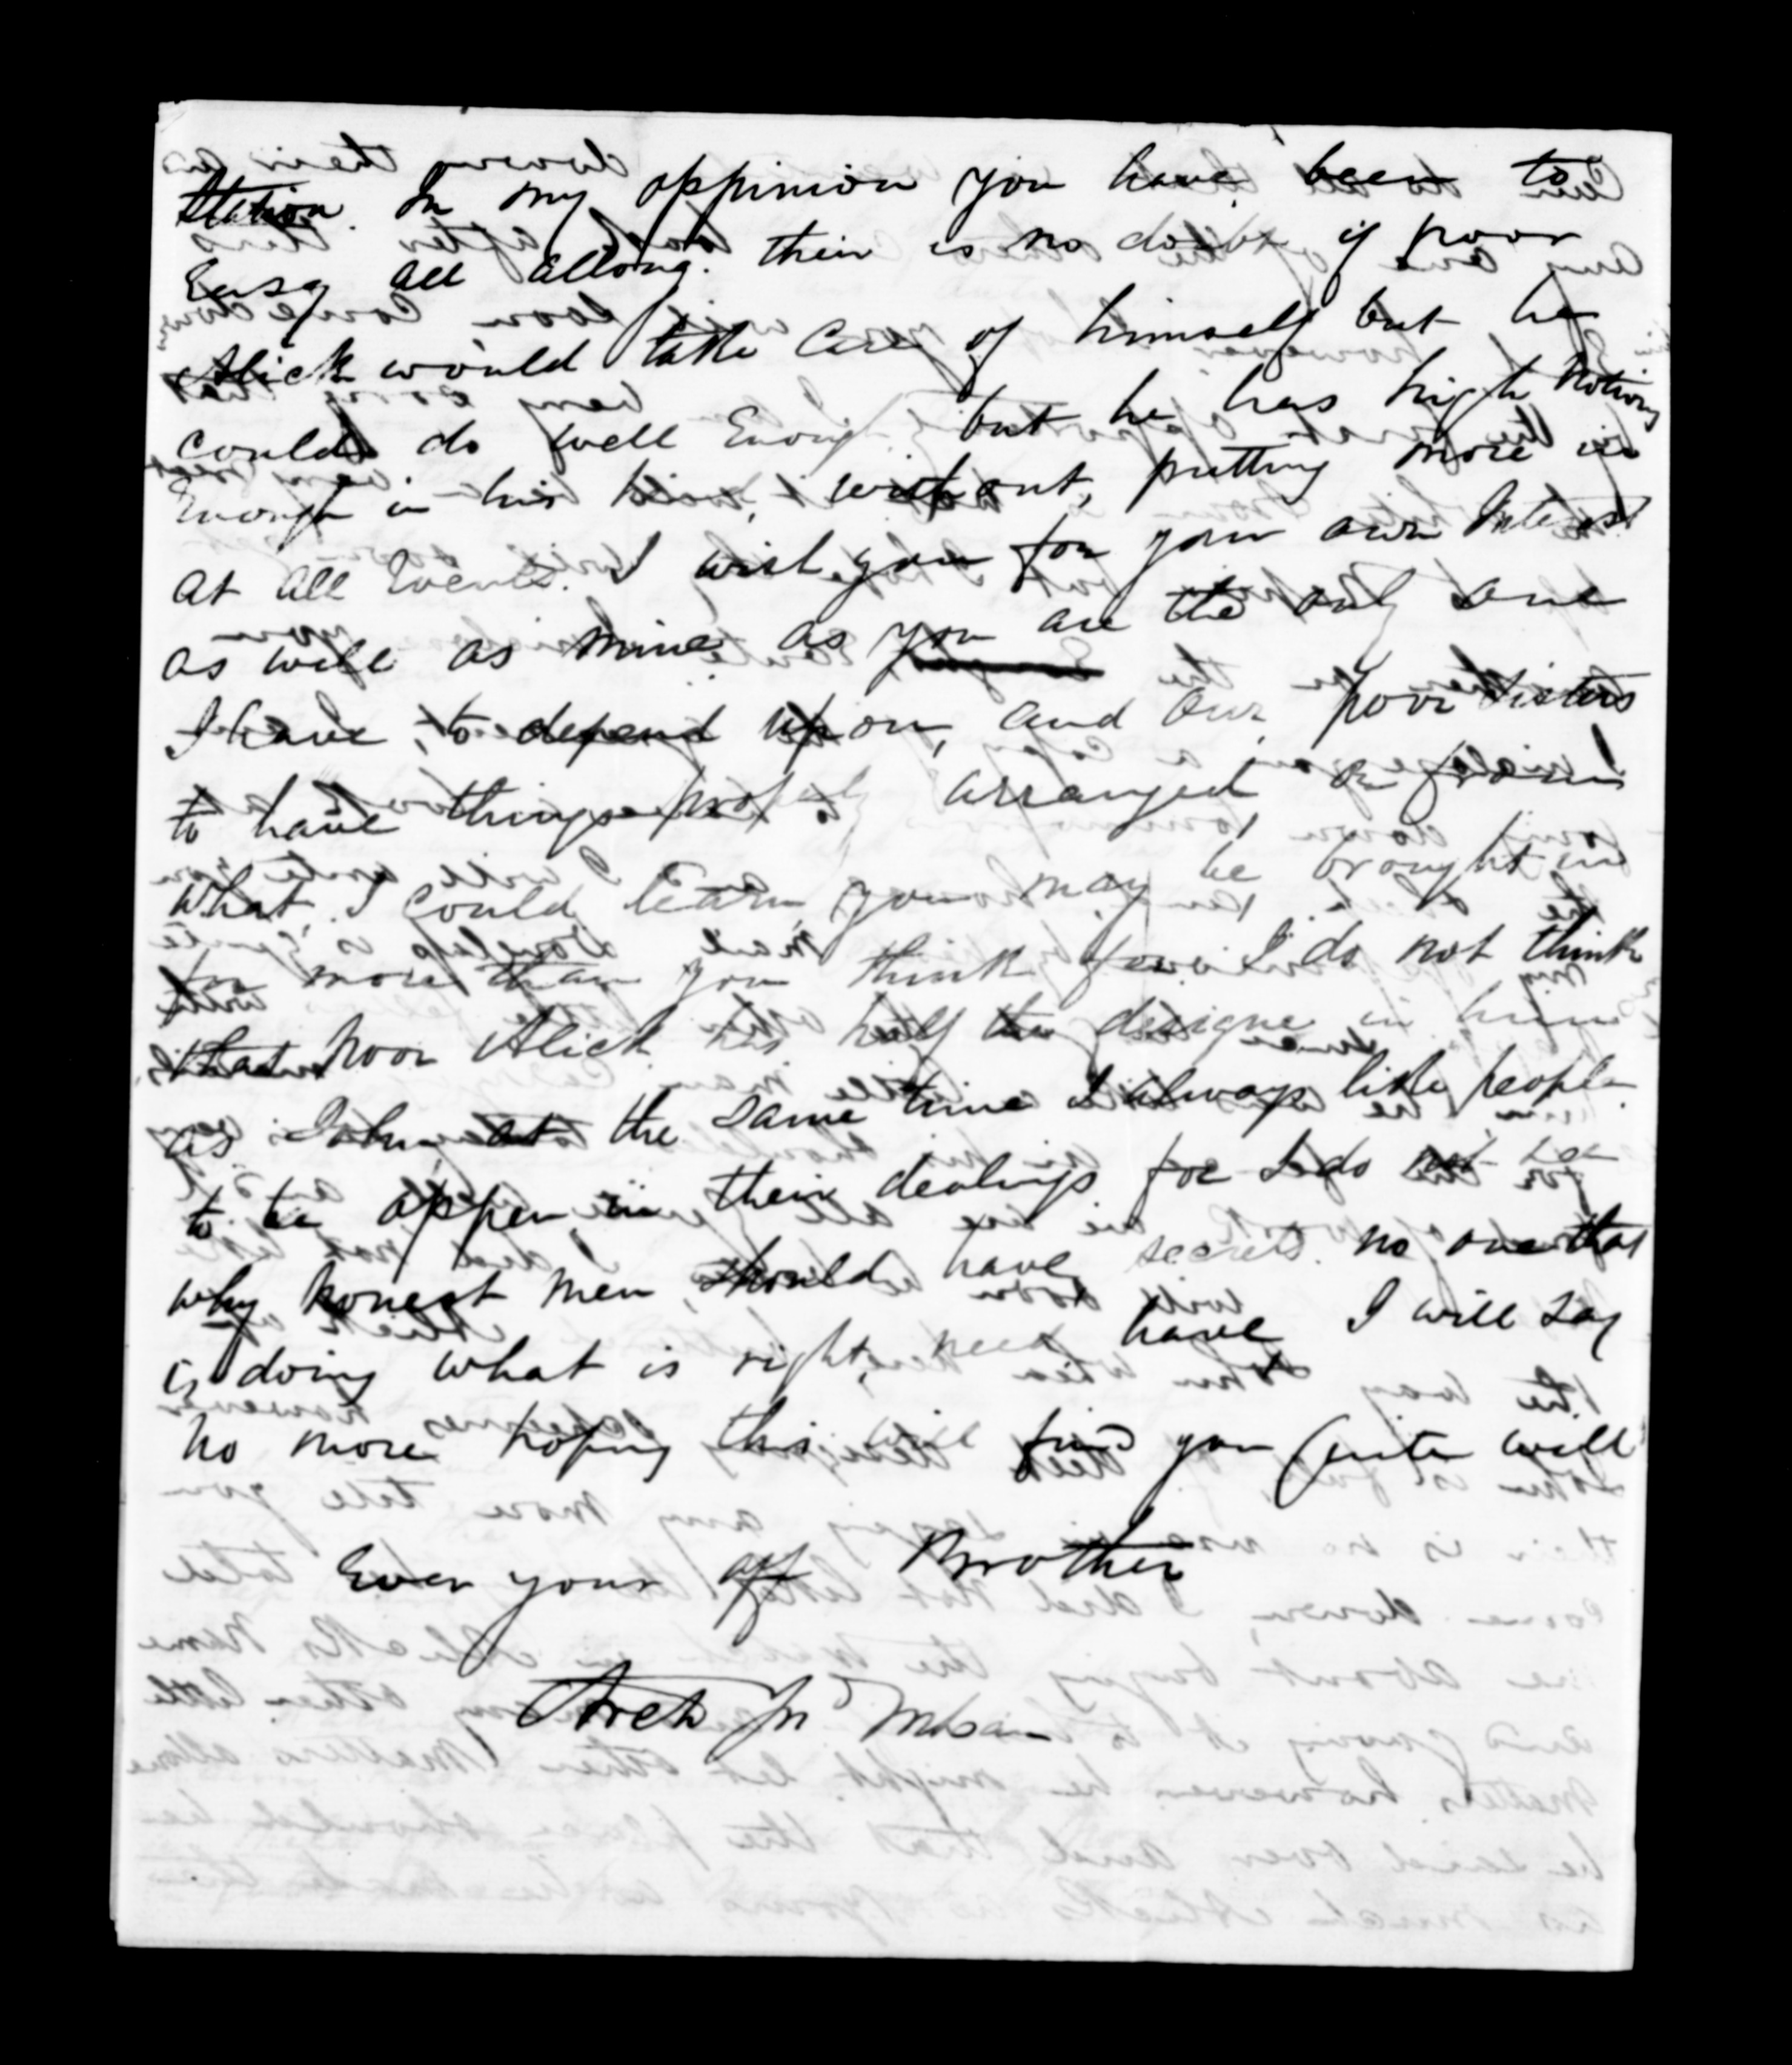 Station. In my oppinion you have been to
Easy all allong. their is no doubt if poor
Alick would take care of himself but he
could do well Enough but he has high Notions
Enough in his him, without, putting more in
At all Events. I wish you for your own Interest
as well as mine as you are the only one
I have, to depend upon, and our poor Sisters
to have things properly arranged or from
What I could learn you may be brought in
for more than you think for. I do not think
that Poor Alick has half the designe in him
as John at the same time I always like people
to be oppen in their dealings for I do not see
why honest men should have secrets. no one that
is doing what is right, need have I will say
no more hoping this will find you quite well
Ever your aff Brother
Arch Jn McLean